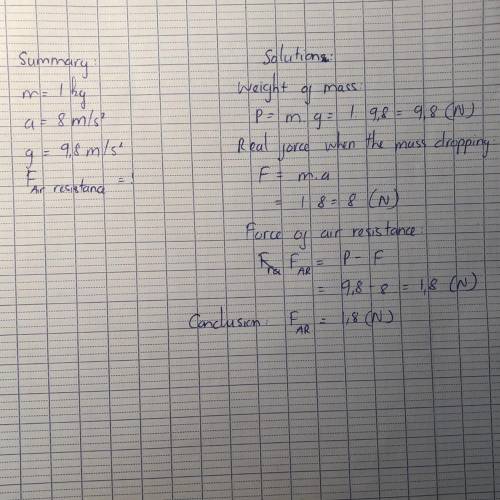 Summary:
m = 1 kg
a = 8 m/s²
g = 9,8 m/s²
F Air resistance = ?
Solutions:
Weight of mass:
P = m. g = 1. 9,8 = 9,8 (N)
Real force when the mass dropping:
F = m.a
= 1 8 = 8 (N)
Force of air resistance:
F_AR = P - F
= 9,8 - 8 = 1,8 (N)
Conclusion: F_AR = 1,8 (N)